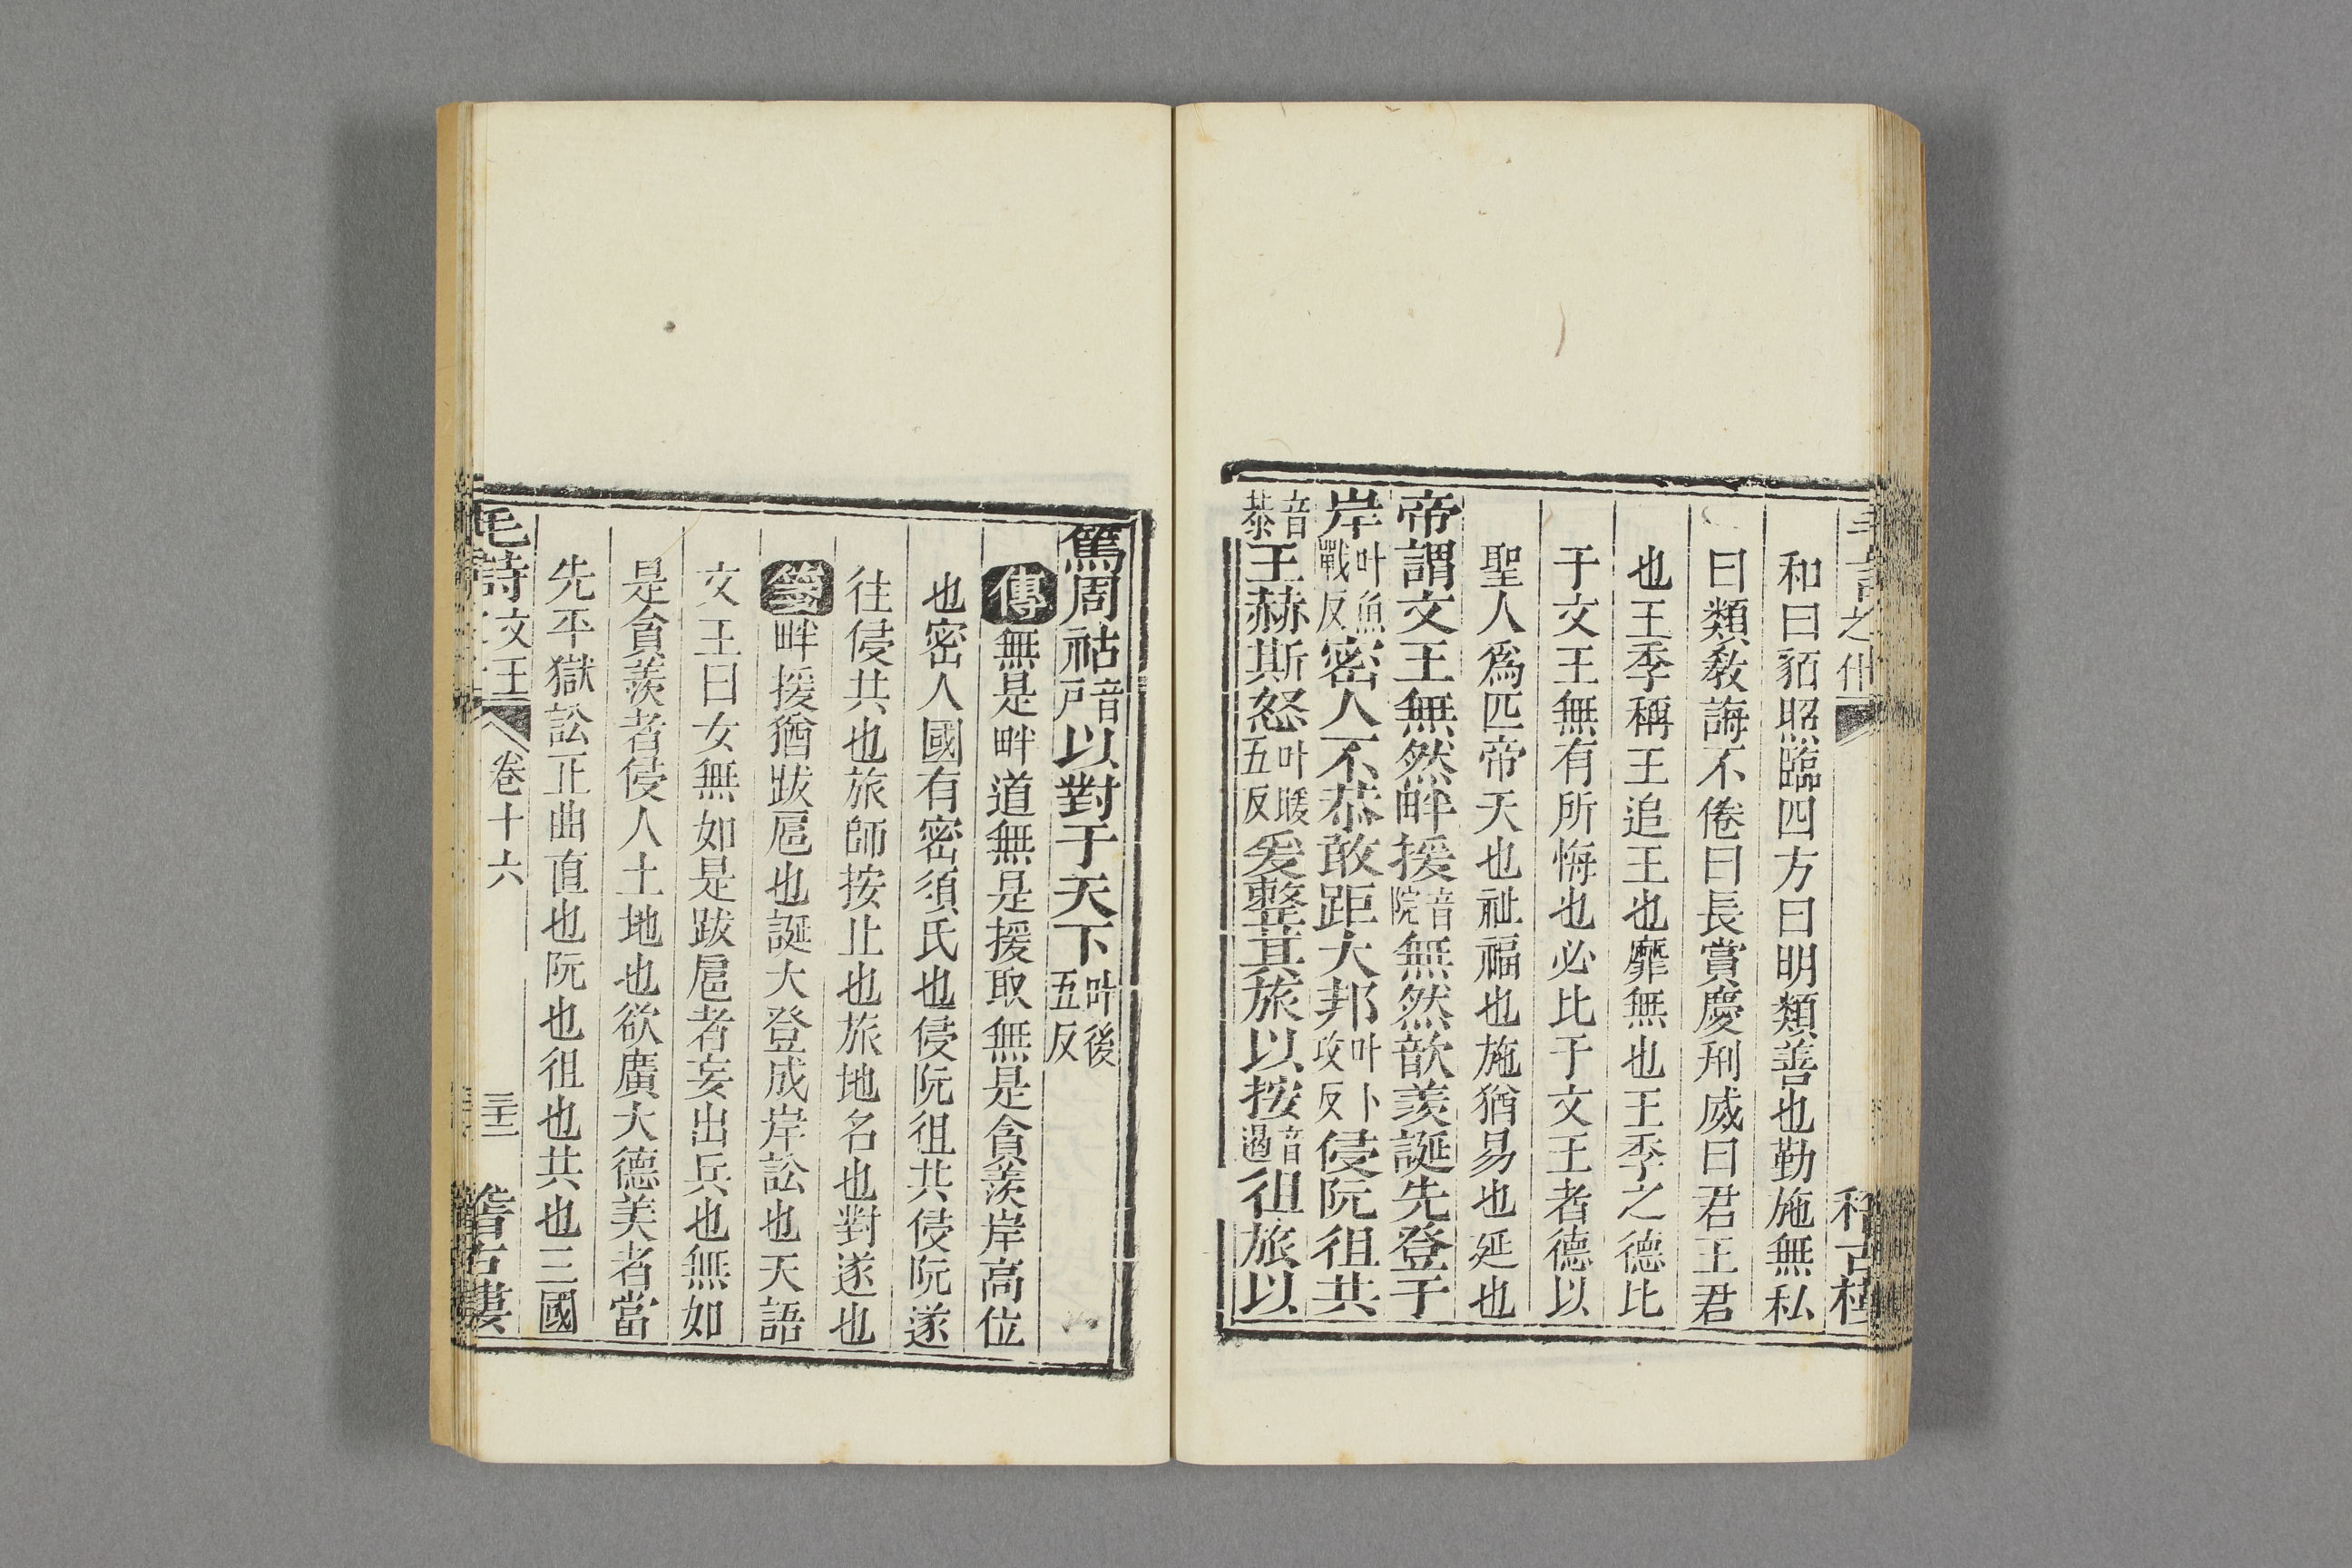 和曰貊照臨四方曰明類善也勤施無私
曰類敎誨不倦曰長賞慶刑威曰君王君
也王季稱王追王也靡無也王季之德比
于文王無有所悔也必比于文王者德以
聖人爲匹帝天也祉福也施猶易也延也
帝謂文王無然畔援音院無然歆羨誕先登于
岸叶魚戰反密人不恭敢距大邦叶卜攻反侵阮徂共
音恭王赫斯怒叶暖五反爰整其旅以按音遏徂旅以
篤周祜音戸以對于天下叶後五反
傳無是畔道無是援取無是貪羨岸高位
也密人國有密須氏也侵阮徂共侵阮遂
往侵共也旅師按止也旅地名也對遂也
箋畔援猶跋扈也誕大登成岸訟也天語
文王曰女無如是跋扈者妄出兵也無如
是貪羨者侵人土地也欲廣大德美者當
先平獄訟正曲直也阮也徂也共也三國
毛詩文王 卷十六